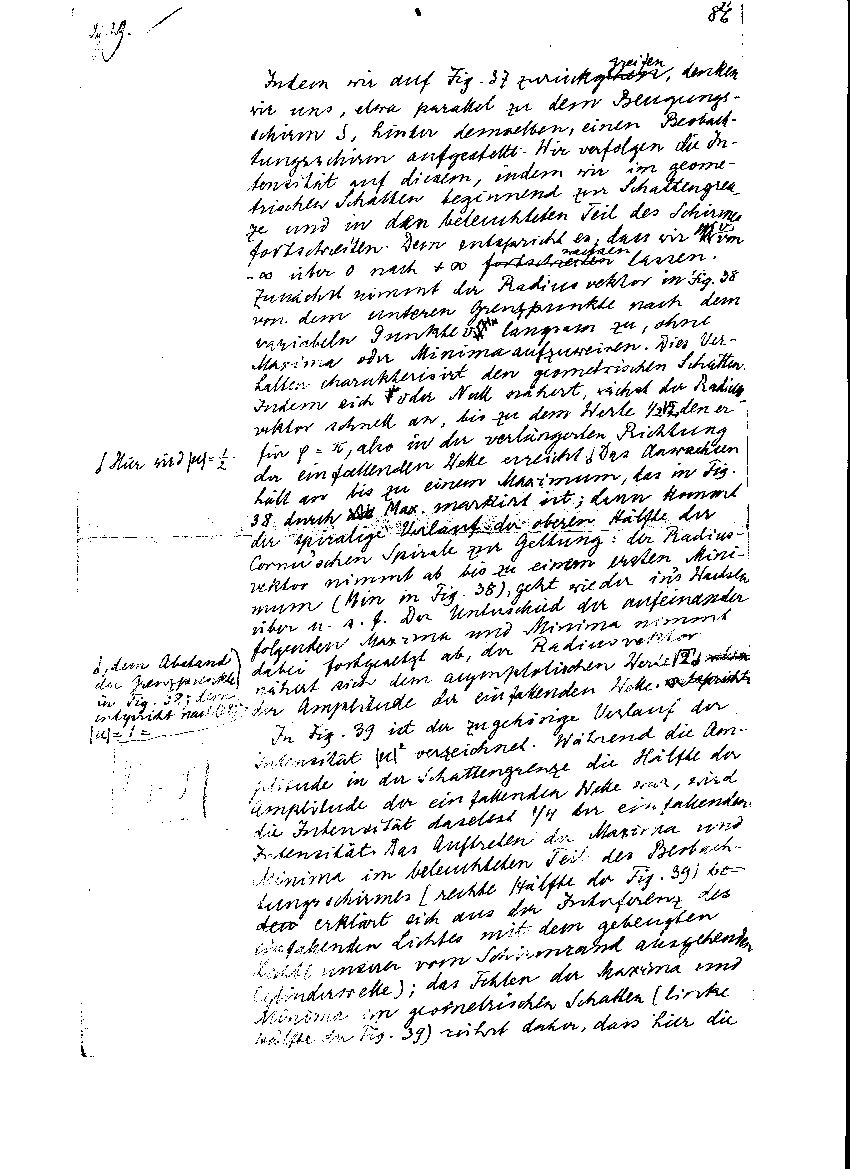 86
Indem wir auf Fig. 37 zurückgreifen, denken
wir uns, etwa parallel zu dem Beugungs-
schirm S, hinter demselben, einen Beobach-
tungsschirm aufgestellt. Wir verfolgen die In-
tensität auf diesem, indem wir im geome-
trischen Schatten beginnend zur Schattengren-
ze und in den beleuchteten Teil des Schirmes
fortschreiten. Dem entspricht es, dass wir von
-∞ über 0 nach +∞ fortschreiten wachsen lassen.
Zunächst nimmt der Radiusvektor in Fig. 38
von dem unteren Grenzpunkte nach dem
variabeln Punkte langsam zu, ohne
Maxima oder Minima aufzuweisen. Dies Ver-
halten charakterisirt den geometrischen Schatten.
Indem sich oder Null nähert, wächst der Radius-
vektor schnell an, bis zu dem Werte 1/2 √2, den er
für φ = π, also in der verlängerten Richtung
der einfallenden Welle erreicht. Das Anwachsen
hält an bis zu einem Maximum, das in Fig.
38 durch Max. markirt ist; dann kommt
der spiralige Verlauf der oberen Hälfte der
Cornu'schen Spirale zur Geltung: der Radius-
vektor nimmt ab bis zu einem ersten Mini-
mum (Min in Fig. 38), geht wieder in's Wachsen
über u. s. f. Der Unterschied der aufeinander
folgenden Maxima und Minima nimmt
dabei fortgesetzt ab, der Radiusvektor
nähert sich dem asymptotischen Werte √2,
der Amplitude der einfallenden Welle.
ʃ Hier wird |u| = 1/2.
ʃ, dem Abstand
der Grenzpunkte
in Fig. 39; dem
entspricht nach
|u| = 1 =
In Fig. 39 ist der zugehörige Verlauf der
Intensität |u|² verzeichnet. Während die Am-
plitude in der Schattengrenze die Hälfte der
Amplitude der einfallenden Welle war, wird
die Intensität daselbst 1/4 der einfallenden
Intensität. Das Auftreten der Maxima und
Minima im beleuchteten Teil des Beobach-
tungsschirmes (rechte Hälfte der Fig. 39)
erklärt sich aus der Interferenz des
einfallenden Lichtes mit dem gebeugten
unserer vom Schirmrand ausgehenden
Cylinderwelle); das Fehlen der Maxima und
Minima im geometrischen Schatten (linke
Hälfte der Fig. 39) rührt daher, dass hier die